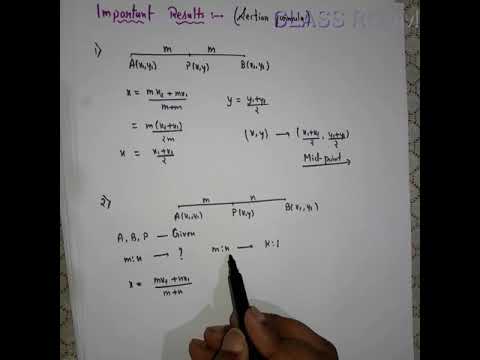 Important Results :- (Section formula)
CLASS ROOM
1)
m m
A(x₁,y₁) P(x,y) B(x₂,y₂)
x = mx₂ + mx₁ / m+m
y = y₁+y₂ / 2
= m(x₂+x₁) / 2m
(x,y) → (x₁+x₂ / 2, y₁+y₂ / 2)
x = x₁+x₂ / 2
Mid-point
2)
m n
A(x₁,y₁) P(x,y) B(x₂,y₂)
A, B, P — Given
m:n → ? m:n → K:1
x = mx₂+nx₁ / m+n